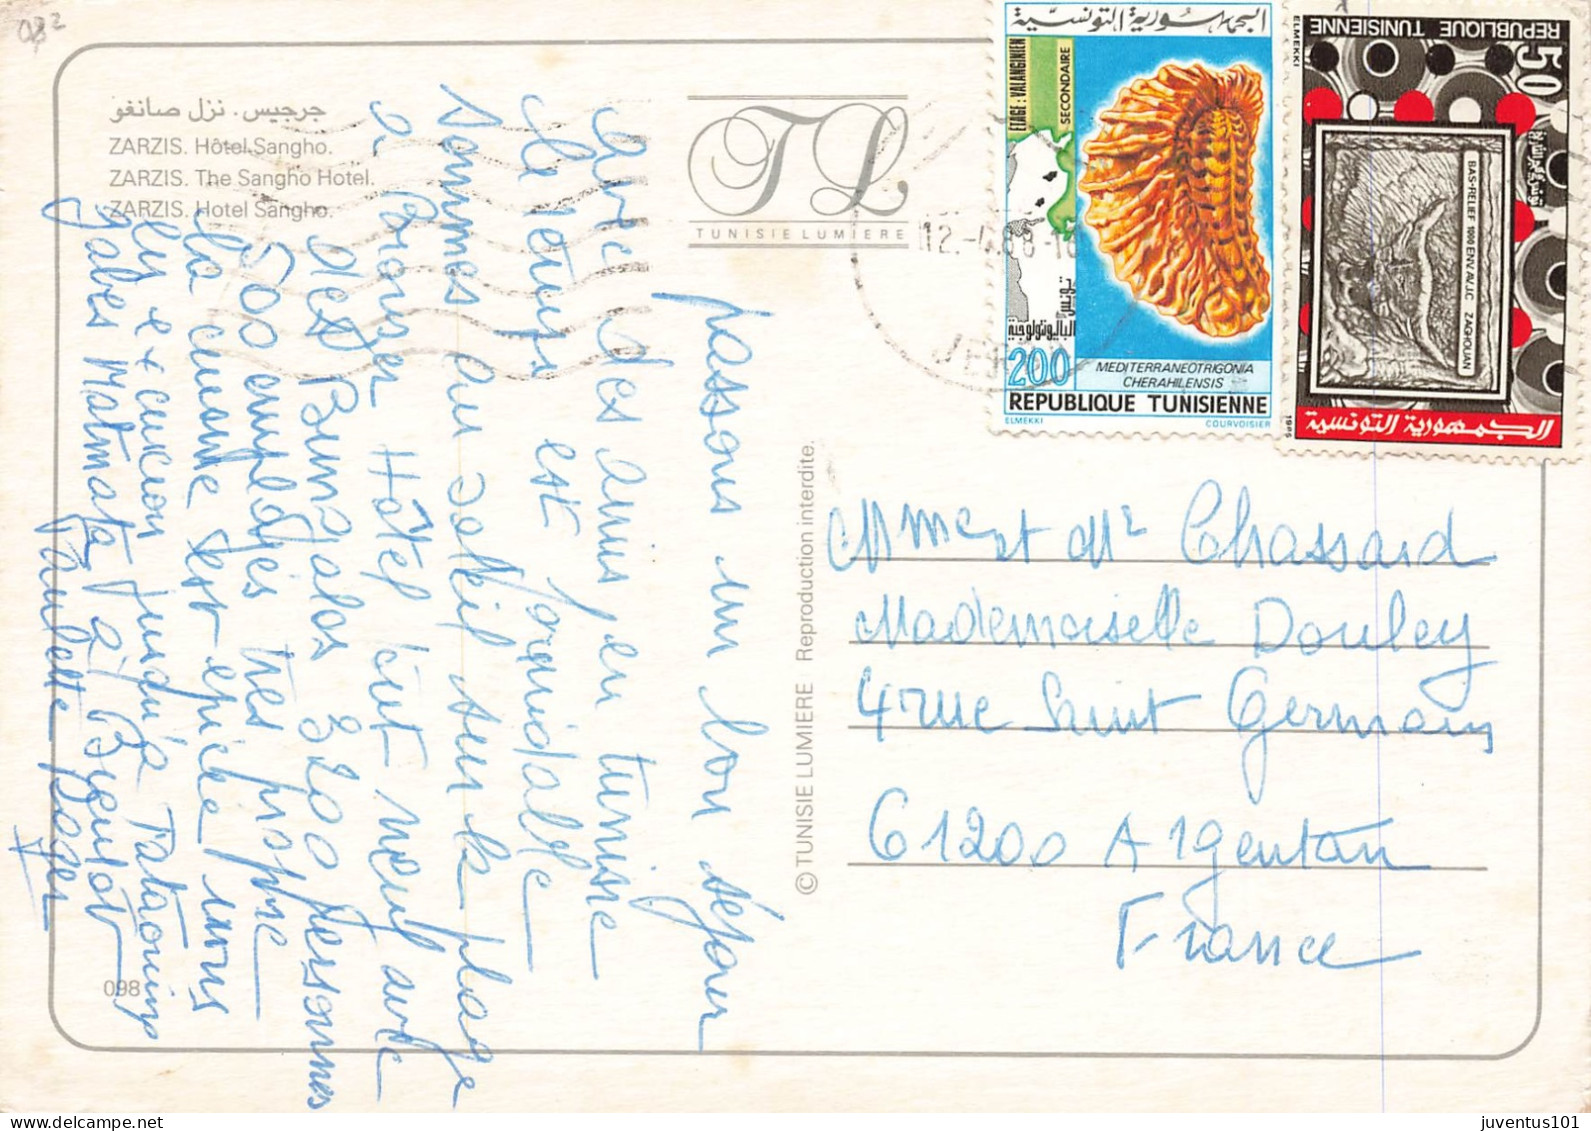 082
جرجيس. نزل صانغو
ZARZIS. Hôtel Sangho.
ZARZIS. The Sangho Hotel.
ZARZIS. Hotel Sangho.
TL
TUNISIE LUMIERE
12.-4.88-1
JER
الجمهورية التونسية
ETAGE : VALANGINIEN
SECONDAIRE
تونس الباليونتولوجية
200
MEDITERRANEOTRIGONIA
CHERAHILENSIS
REPUBLIQUE TUNISIENNE
ELMEKKI
COURVOISIER
REPUBLIQUE TUNISIENNE
ELMEKKI
50
BAS-RELIEF 1000 ENV. AV. J.C ZAGHOUAN
1985
الجمهورية التونسية
passons un bon séjour
avec des amis en tunisie
le temps est formidable
sommes au soleil sur la plage
a bronzer Hôtel tout neuf avec
des Bungalos 3200 personnes
500 employés très propre
la cuisine est épicée irons
en excursion jusqu'à Tataouine
Gabes Matmata a Bientôt
Paulette Roger
098
© TUNISIE LUMIERE Reproduction interdite.
Mme et Mr Chassard
Mademoiselle Douley
4 rue Saint Germain
61200 Argentan
France
juventus101